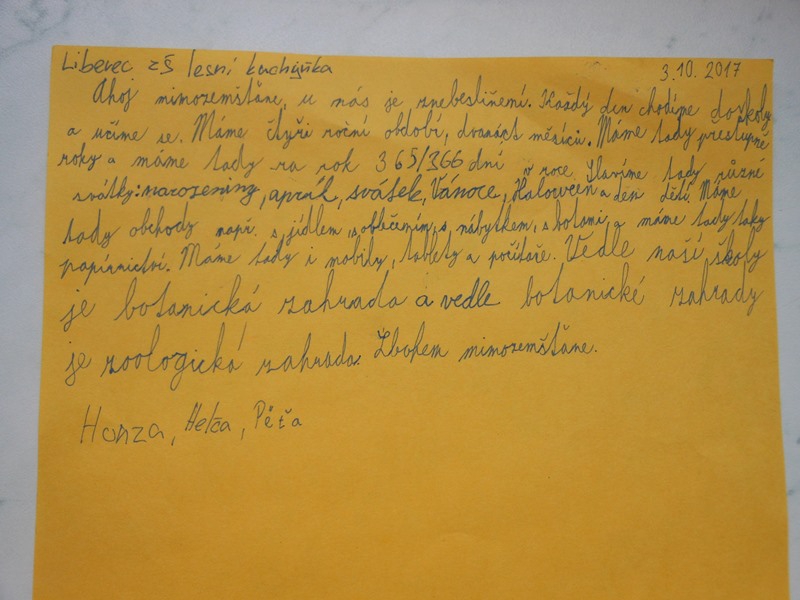 Liberec zš lesní kuchyňka 3.10. 2017
Ahoj mimozemšťane, u nás je znebeslišnemí. Každý den chodíme do školy
a učíme se. Máme čtyři roční období, dvanáct měsíců. Máme tady přestupné
roky a máme tady za rok 365/366 dní v roce. Slavíme tady různé
svátky: narozeniny, apríl, svátek, Vánoce, Haloween a den dětí. Máme
tady obchody např. s jídlem, s oblečením, s nábytkem, s botami, a máme tady taky
papírnictví. Máme tady i mobily, tablety a počítače. Vedle naší školy
je botanická zahrada a vedle botanické zahrady
je zoologická zahrada. Zbohem mimozemšťane.
Honza, Helča, Péťa